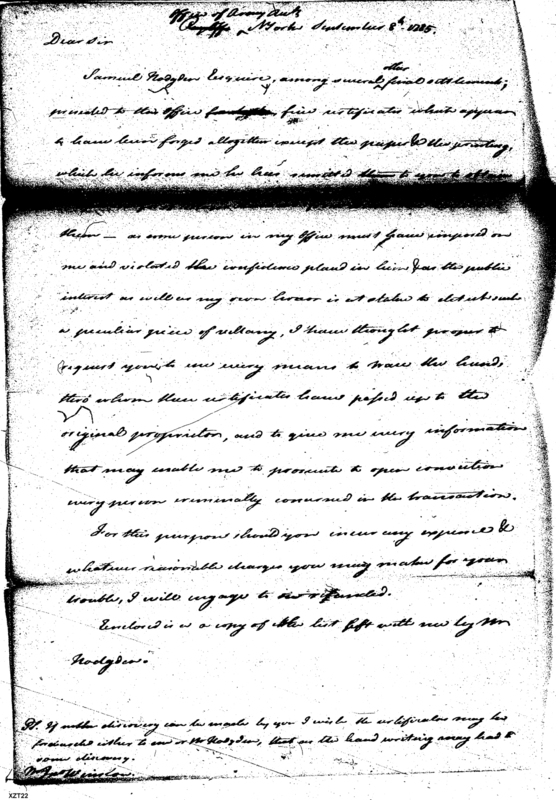 Office of Army Acts
N York September 8th 1785.
Dear Sir
Samuel Hodgdon Esquire, among several other final settlements;
presented to this Office five certificates which appear
to have been forged altogether except the paper & the printing,
which he informs me he has remitted to you to obtain
them — as some person in my Office must have imposed on
me and violated the confidence placed in him & as the public
interest as well as my own honor is at stake to detect such
a peculiar piece of villany, I have thought proper to
request you, to use every means to trace the hands,
thro' whom these certificates have passed up to the
original proprietor, and to give me every information
that may enable me to prosecute to open conviction
every person criminally concerned in the transaction.
For this purpose should you incur any expence &
whatever reasonable charges you may make for your
trouble, I will engage to refunded.
Enclosed is a copy of the list left with me by Mr
Hodgdon.
PS. If no other discovery can be made by you I wish the certificates may be
forwarded either to me or Mr Hodgdon, that as the hand writing may lead to
some discovery.
Winslow.
XZT22